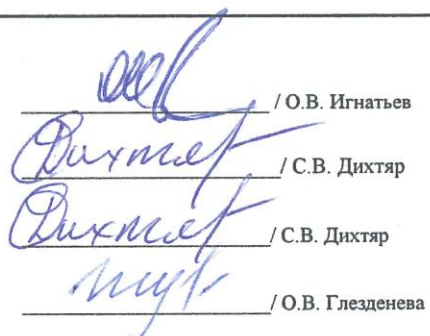 / О.В. Игнатьев
Дихтяр / С.В. Дихтяр
Дихтяр / С.В. Дихтяр
/ О.В. Глезденева